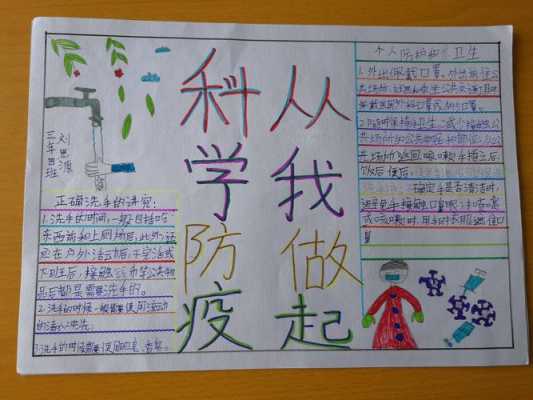 科学防疫
从我做起
三年四班
刘思源
正确洗手的讲究:
1.洗手的时间,一般包括吃
东西前和上厕所后,此外,还
应在户外活动后,干完活或
下班后,接触钱币等公共物
品后都是需要洗手的。
2.洗手的时候一般需要使用流动
的清水冲洗。
3.洗手的时候需要使用肥皂、香皂
个人防护和卫生
1.外出佩戴口罩。外出前往公
共场所
戴医用外科口罩或N95口罩。
2.随时保持手卫生。减少接触公
共场所的公共物品和部位;从公
共场所返回、咳嗽手捂之后、
饭前便后,
不确定手是否清洁时,
避免用手接触口鼻眼;打喷嚏
或咳嗽时,用手肘衣服遮住口
鼻